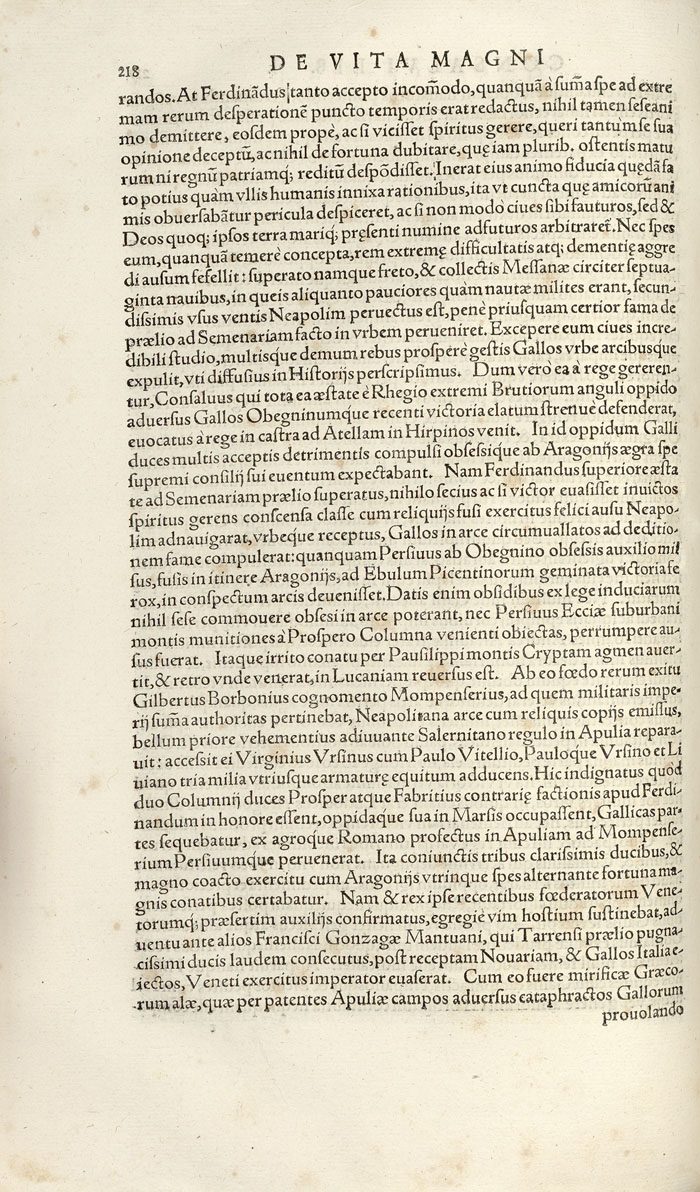 218 DE VITA MAGNI
randos. At Ferdinãdus tanto accepto incom̃odo, quanquã à sum̃a spe ad extre
mam rerum desperationẽ puncto temporis erat redactus, nihil tamen sese ani
mo demittere, eosdem propè, ac si vicisset spiritus gerere, queri tantum se sua
opinione deceptũ, ac nihil de fortuna dubitare, quę iam plurib. ostentis matu
rum ni regnũ patriamq; reditũ despõdisset. Inerat eius animo fiducia quędã fa
to potius quàm vllis humanis innixa rationibus, ita vt cuncta quę amicorũ ani
mis obuersabãtur pericula despiceret, ac si non modò ciues sibi fauturos, sed &
Deos quoq; ipsos terra mariq; pręsenti numine adfuturos arbitraret̃. Nec spes
eum, quanquã temerè concepta, rem extremę difficultatis atq; dementię aggre
di ausum fefellit: superato namque freto, & collectis Messanæ circiter septua-
ginta nauibus, in queis aliquanto pauciores quàm nautæ milites erant, secun-
dissimis vsus ventis Neapolim peruectus est, penè priusquam certior fama de
prælio ad Semenariam facto in vrbem perueniret. Excepere eum ciues incre-
dibili studio, multisque demum rebus prosperè gestis Gallos vrbe arcibusque
expulit, vti diffusius in Historijs perscripsimus. Dum vero ea à rege gereren-
tur, Consaluus qui tota ea æstate è Rhegio extremi Brutiorum anguli oppido
aduersus Gallos Obegninumque recenti victoria elatum strenuè defenderat,
euocatus à rege in castra ad Atellam in Hirpinos venit. In id oppidum Galli
duces multis acceptis detrimentis compulsi obsessique ab Aragonijs ægra spe
supremi consilij sui euentum expectabant. Nam Ferdinandus superiore æsta
te ad Semenariam prælio superatus, nihilo secius ac si victor euasisset inuictos
spiritus gerens conscensa classe cum reliquijs fusi exercitus felici ausu Neapo-
lim adnauigarat, vrbeque receptus, Gallos in arce circumuallatos ad deditio-
nem fame compulerat: quanquam Persiuus ab Obegnino obsessis auxilio mis
sus, fusis in itinere Aragonijs, ad Ebulum Picentinorum geminata victoria fe
rox, in conspectum arcis deuenisset. Datis enim obsidibus ex lege induciarum
nihil sese commouere obsesi in arce poterant, nec Persiuus Ecciæ suburbani
montis munitiones à Prospero Columna venienti obiectas, perrumpere au-
sus fuerat. Itaque irrito conatu per Pausilippi montis Cryptam agmen auer-
tit, & retro vnde venerat, in Lucaniam reuersus est. Ab eo fœdo rerum exitu
Gilbertus Borbonius cognomento Mompenserius, ad quem militaris impe-
rij sum̃a authoritas pertinebat, Neapolitana arce cum reliquis copijs emissus,
bellum priore vehementius adiuuante Salernitano regulo in Apulia repara-
uit: accessit ei Virginius Vrsinus cum Paulo Vitellio, Pauloque Vrsino et Li
uiano tria milia vtriusque armaturę equitum adducens. Hic indignatus quòd
duo Columnij duces Prosper atque Fabritius contrarię factionis apud Ferdi-
nandum in honore essent, oppidaque sua in Marsis occupassent, Gallicas par-
tes sequebatur, ex agroque Romano profectus in Apuliam ad Mompense-
rium Persiuumque peruenerat. Ita coniunctis tribus clarissimis ducibus, &
magno coacto exercitu cum Aragonijs vtrinque spes alternante fortuna ma-
gnis conatibus certabatur. Nam & rex ipse recentibus fœderatorum Vene-
torumq; præsertim auxilijs confirmatus, egregiè vim hostium sustinebat, ad-
uentu ante alios Francisci Gonzagæ Mantuani, qui Tarrensi prælio pugna-
cissimi ducis laudem consecutus, post receptam Nouariam, & Gallos Italia e-
iectos, Veneti exercitus imperator euaserat. Cum eo fuere mirificæ Græco-
rum alæ, quæ per patentes Apuliæ campos aduersus cataphractos Gallorum
prouolando